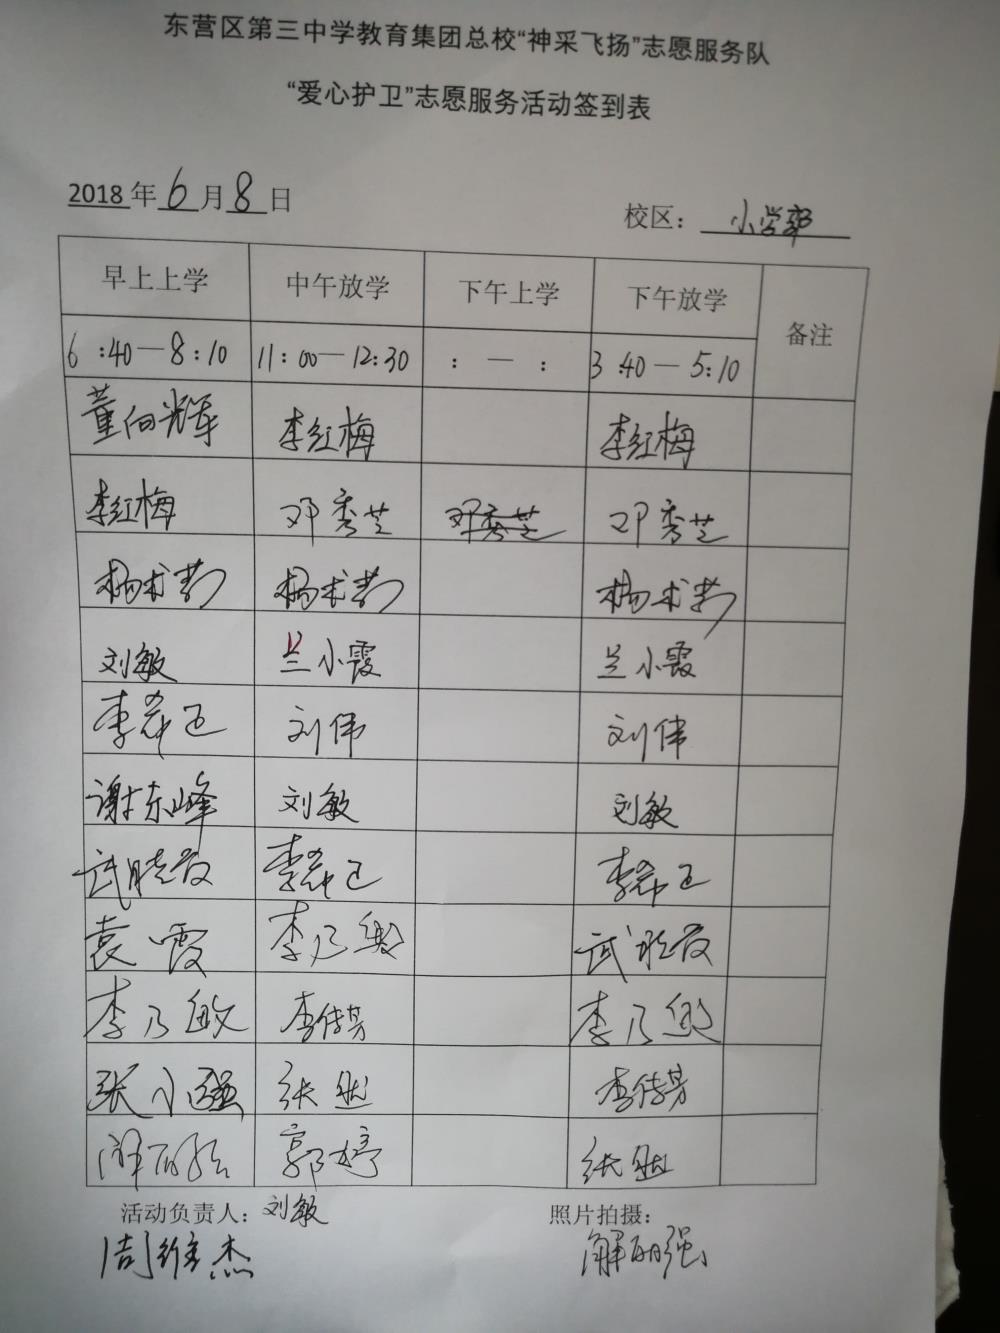 东营区第三中学教育集团总校“神采飞扬”志愿服务队
“爱心护卫”志愿服务活动签到表
2018年6月8日
校区：小学部
早上上学 中午放学 下午上学 下午放学 备注
6:40—8:10 11:00—12:30 :—: 3:40—5:10
董向辉 李红梅 李红梅
李红梅 邓秀芝 邓秀芝 邓秀芝
杨术莉 杨术莉 杨术莉
刘敏 兰小霞 兰小霞
李希正 刘伟 刘伟
谢东峰 刘敏 刘敏
武晓霞 李希正 李希正
袁霞 李乃敏 武晓霞
李乃敏 李传芳 李乃敏
张小强 张 李传芳
郭婷 张
活动负责人：刘敏 照片拍摄：
周维杰 解丽强